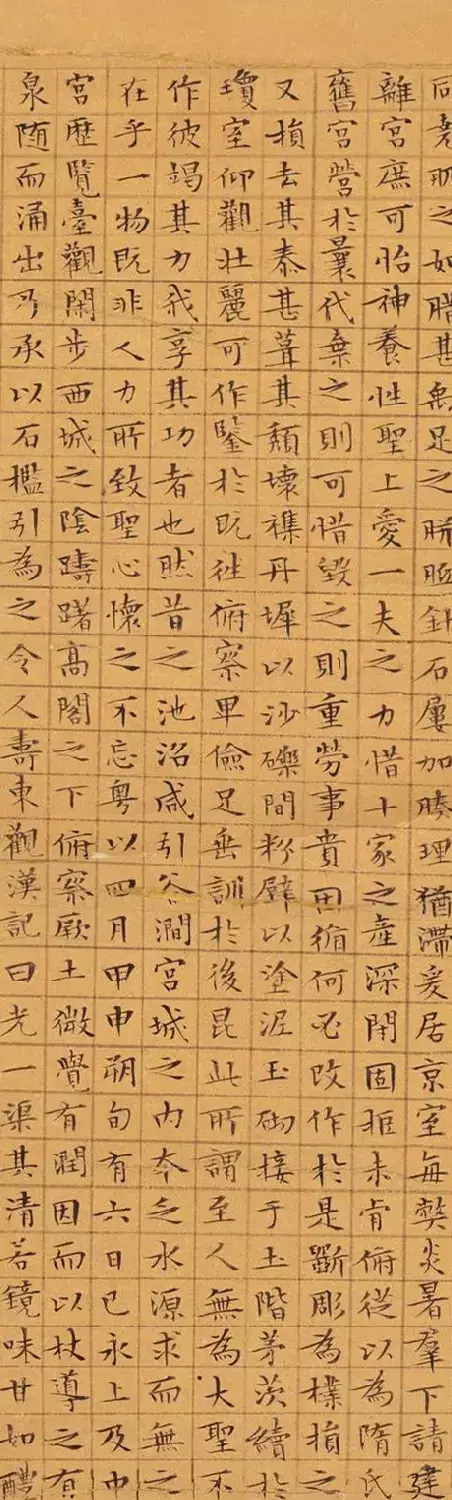 同堯肌之如腊甚禹足之胼胝針石屢加腠理猶滯爰居京室每弊炎暑羣下請建
離宮庶可怡神養性聖上愛一夫之力惜十家之產深閉固拒未肯俯從以為隋氏
舊宮營於曩代棄之則可惜毀之則重勞事貴因循何必改作於是斵彫為樸損之
又損去其泰甚葺其頹壞雜丹墀以沙礫間粉壁以塗泥玉砌接于土階茅茨續於
瓊室仰觀壯麗可作鑒於既往俯察卑儉足垂訓於後昆此所謂至人無為大聖不
作彼竭其力我享其功者也然昔之池沼咸引谷澗宮城之內本乏水源求而無之
在乎一物既非人力所致聖心懷之不忘粵以四月甲申朔旬有六日己亥上及中
宮歷覽臺觀閑步西城之陰躊躇高閣之下俯察厥土微覺有潤因而以杖導之有
泉随而涌出乃承以石檻引為之令人壽東觀漢記曰光一渠其清若鏡味甘如醴